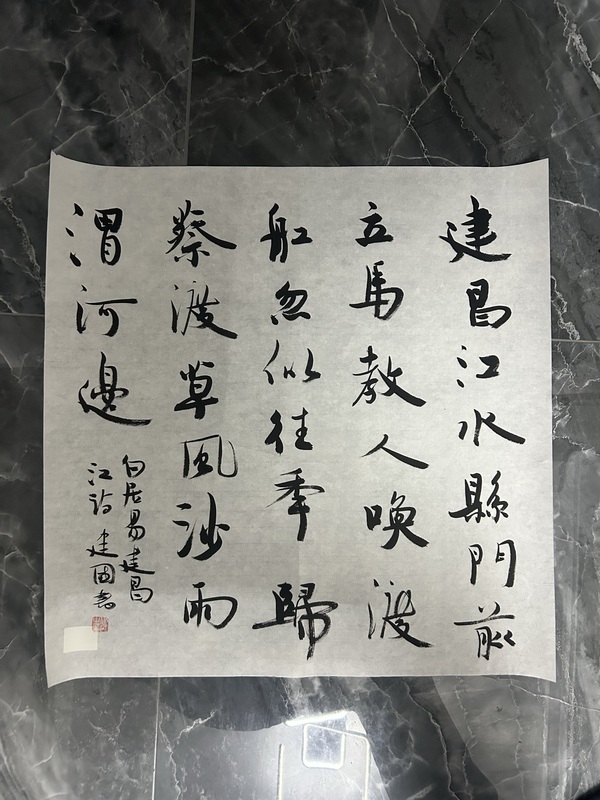 建昌江水縣門前
立馬教人喚渡
舡忽似往秊歸
蔡渡草風沙雨
渭河邊
白居易建昌
江詩 建國書